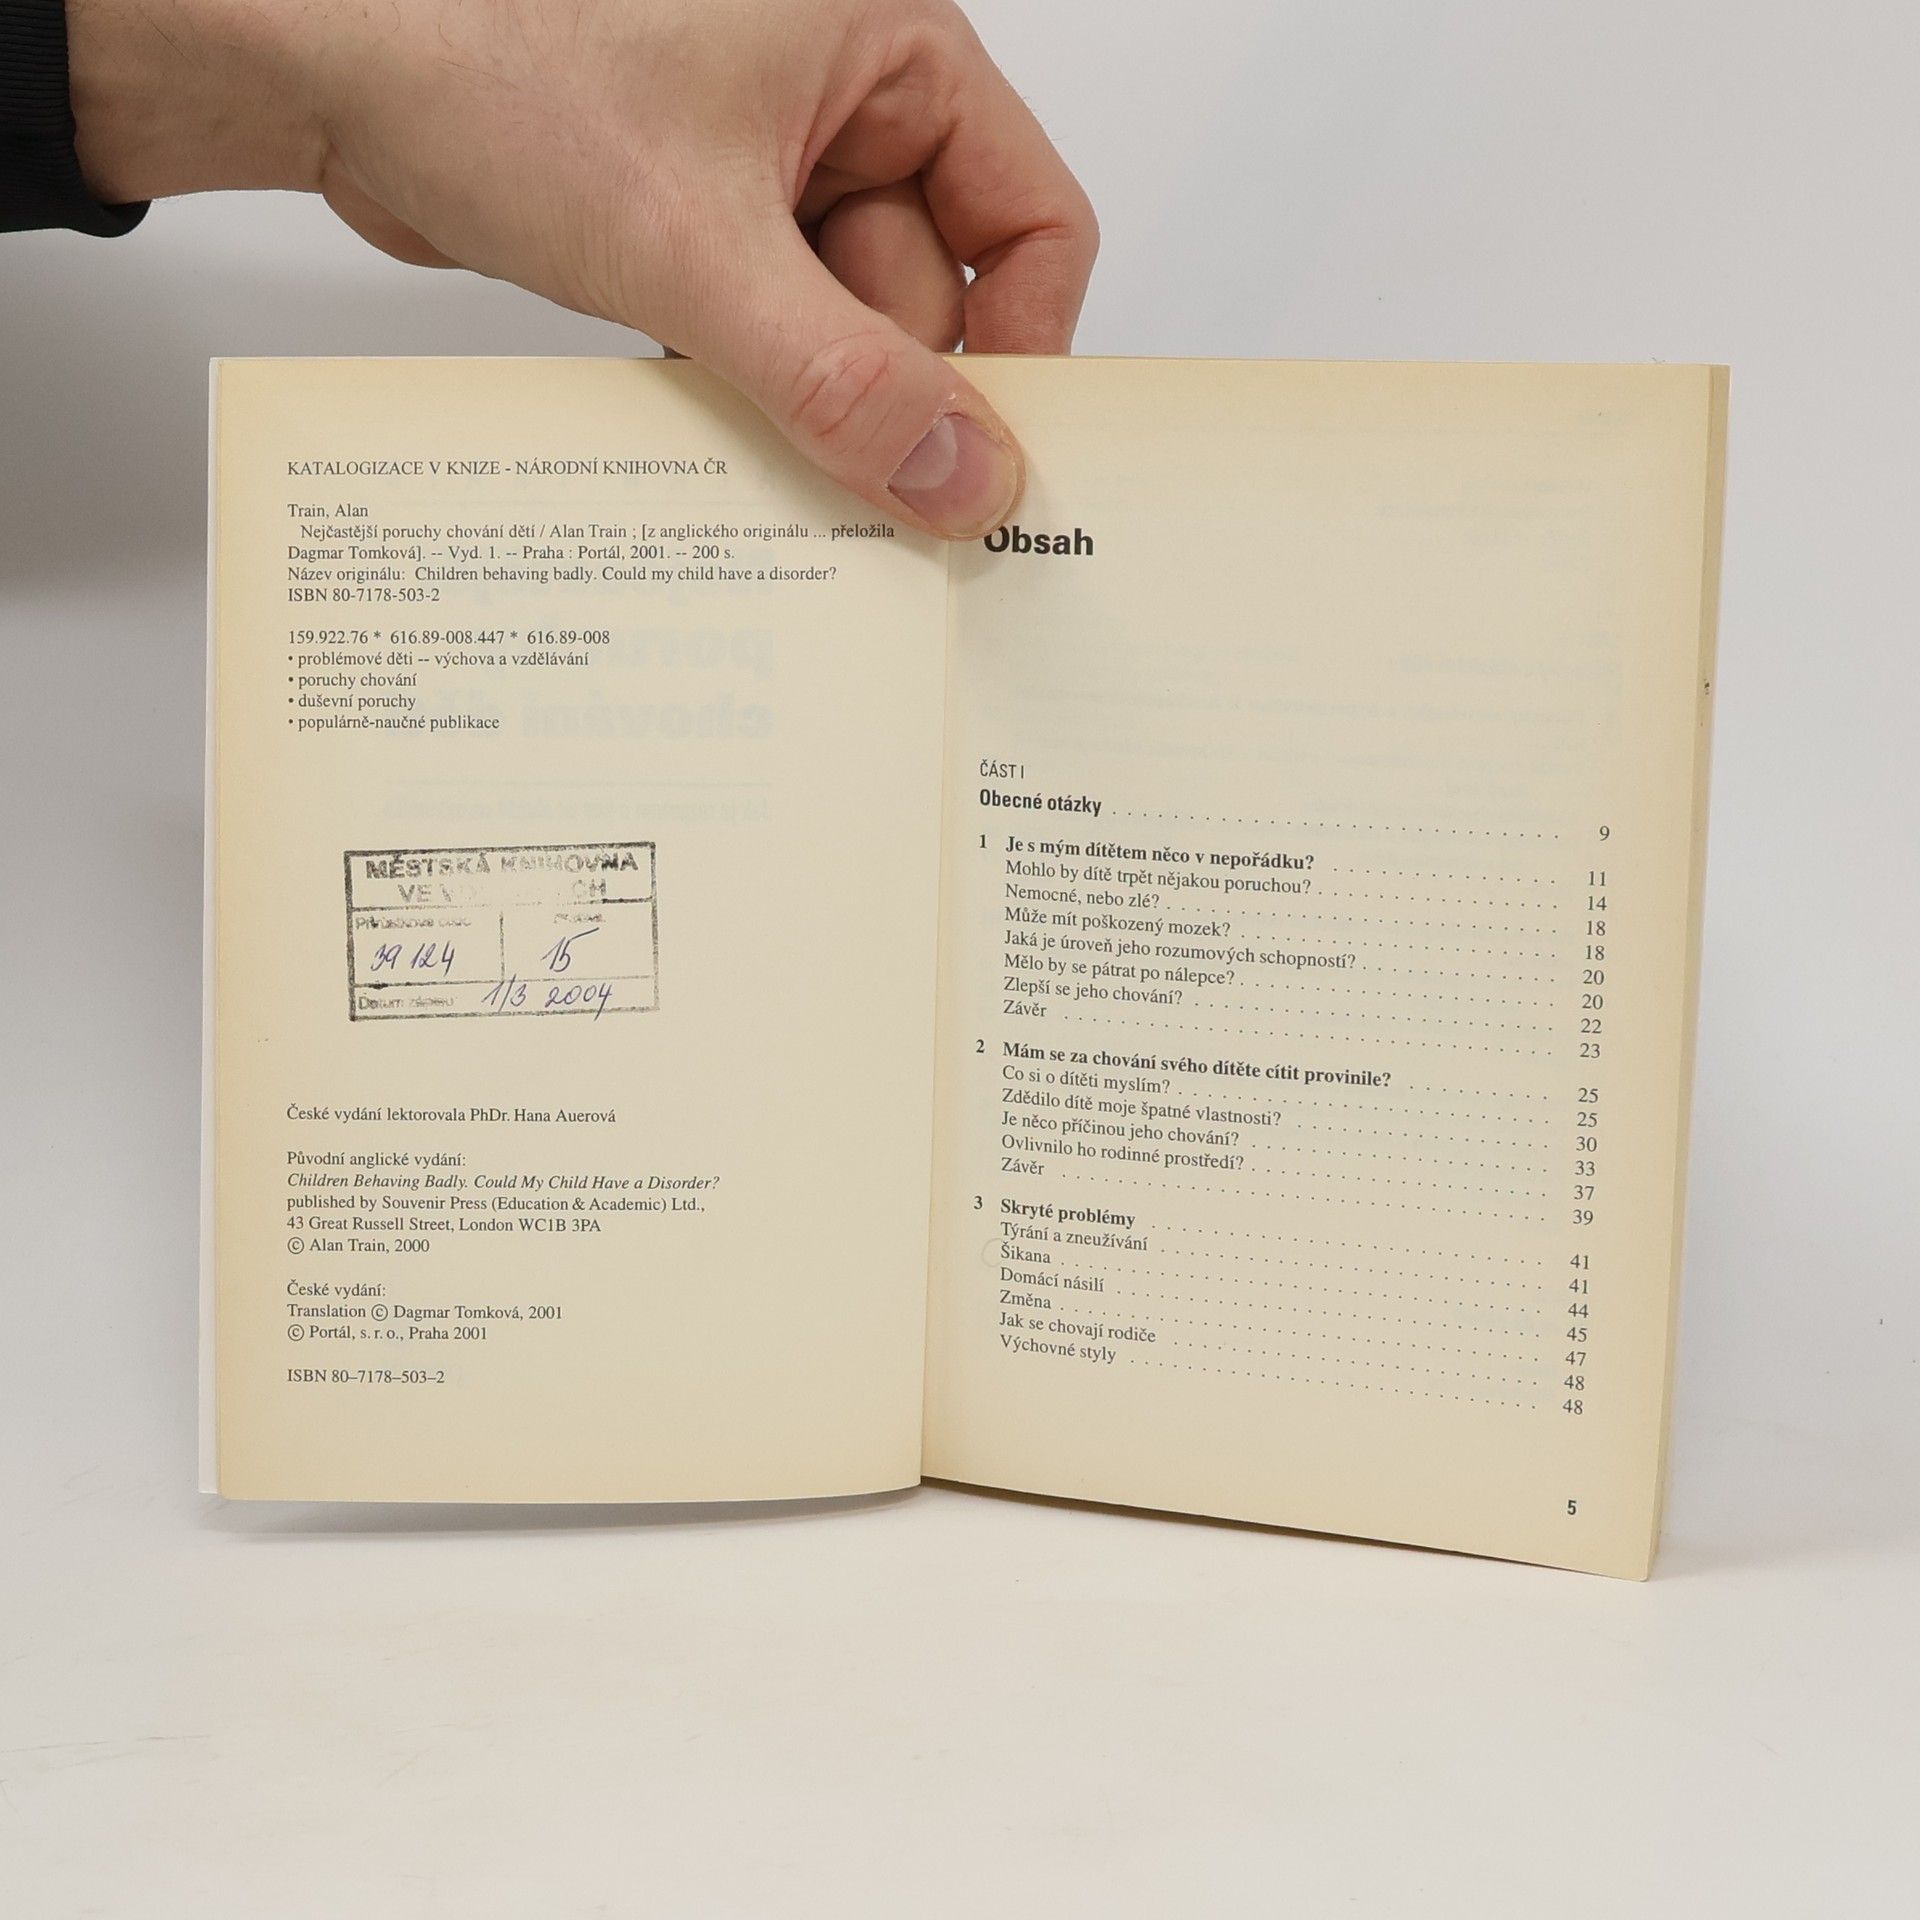 KATALOGIZACE V KNIZE - NÁRODNÍ KNIHOVNA ČR
Train, Alan
Nejčastější poruchy chování dětí / Alan Train ; [z anglického originálu ... přeložila
Dagmar Tomková]. -- Vyd. 1. -- Praha : Portál, 2001. -- 200 s.
Název originálu: Children behaving badly. Could my child have a disorder?
ISBN 80-7178-503-2
159.922.76 * 616.89-008.447 * 616.89-008
• problémové děti -- výchova a vzdělávání
• poruchy chování
• duševní poruchy
• populárně-naučné publikace
MĚSTSKÁ KNIHOVNA
VE
39 124
15
Datum zápisu 1/3 2004
České vydání lektorovala PhDr. Hana Auerová
Původní anglické vydání:
Children Behaving Badly. Could My Child Have a Disorder?
published by Souvenir Press (Education & Academic) Ltd.,
43 Great Russell Street, London WC1B 3PA
© Alan Train, 2000
České vydání:
Translation © Dagmar Tomková, 2001
© Portál, s. r. o., Praha 2001
ISBN 80–7178–503–2
Obsah
ČÁST I
Obecné otázky . . . . . . . . . . 9
1 Je s mým dítětem něco v nepořádku? . . . . . . . . . . 11
Mohlo by dítě trpět nějakou poruchou? . . . . . . . . . . 14
Nemocné, nebo zlé? . . . . . . . . . . 18
Může mít poškozený mozek? . . . . . . . . . . 18
Jaká je úroveň jeho rozumových schopností? . . . . . . . . . . 20
Mělo by se pátrat po nálepce? . . . . . . . . . . 20
Zlepší se jeho chování? . . . . . . . . . . 22
Závěr . . . . . . . . . . 23
2 Mám se za chování svého dítěte cítit provinile? . . . . . . . . . . 25
Co si o dítěti myslím? . . . . . . . . . . 25
Zdědilo dítě moje špatné vlastnosti? . . . . . . . . . . 30
Je něco příčinou jeho chování? . . . . . . . . . . 33
Ovlivnilo ho rodinné prostředí? . . . . . . . . . . 37
Závěr . . . . . . . . . . 39
3 Skryté problémy . . . . . . . . . . 41
Týrání a zneužívání . . . . . . . . . . 41
Šikana . . . . . . . . . . 44
Domácí násilí . . . . . . . . . . 45
Změna . . . . . . . . . . 47
Jak se chovají rodiče . . . . . . . . . . 48
Výchovné styly . . . . . . . . . . 48
5